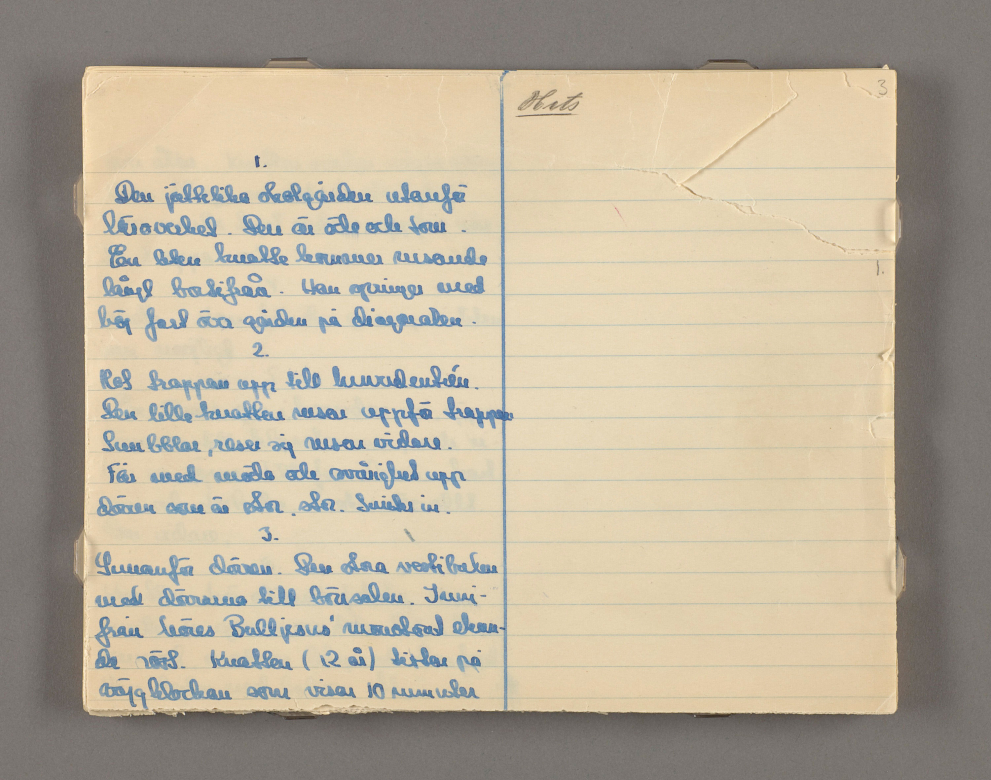 1.
Den jättelika skolgården utanför
läroverket. Den är öde och tom.
En liten knatte kommer rusande
långt bortifrån. Han springer med
hög fart över gården på diagonalen.
2.
trappan upp till
Den lille knatten rusar uppför trappan
Snubblar, reser sig rusar vidare.
Får med möda och svårighet upp
dörren som är stor, stor. Smiter in.
3.
Innanför dörren. Den stora vestibulen
med dörrarna till bönsalen. Inni-
från höres Bulljesus' monotont skan-
de röst. Knatten (12 år) tittar på
väggklockan som visar 10 minuter
Hits
3
1.